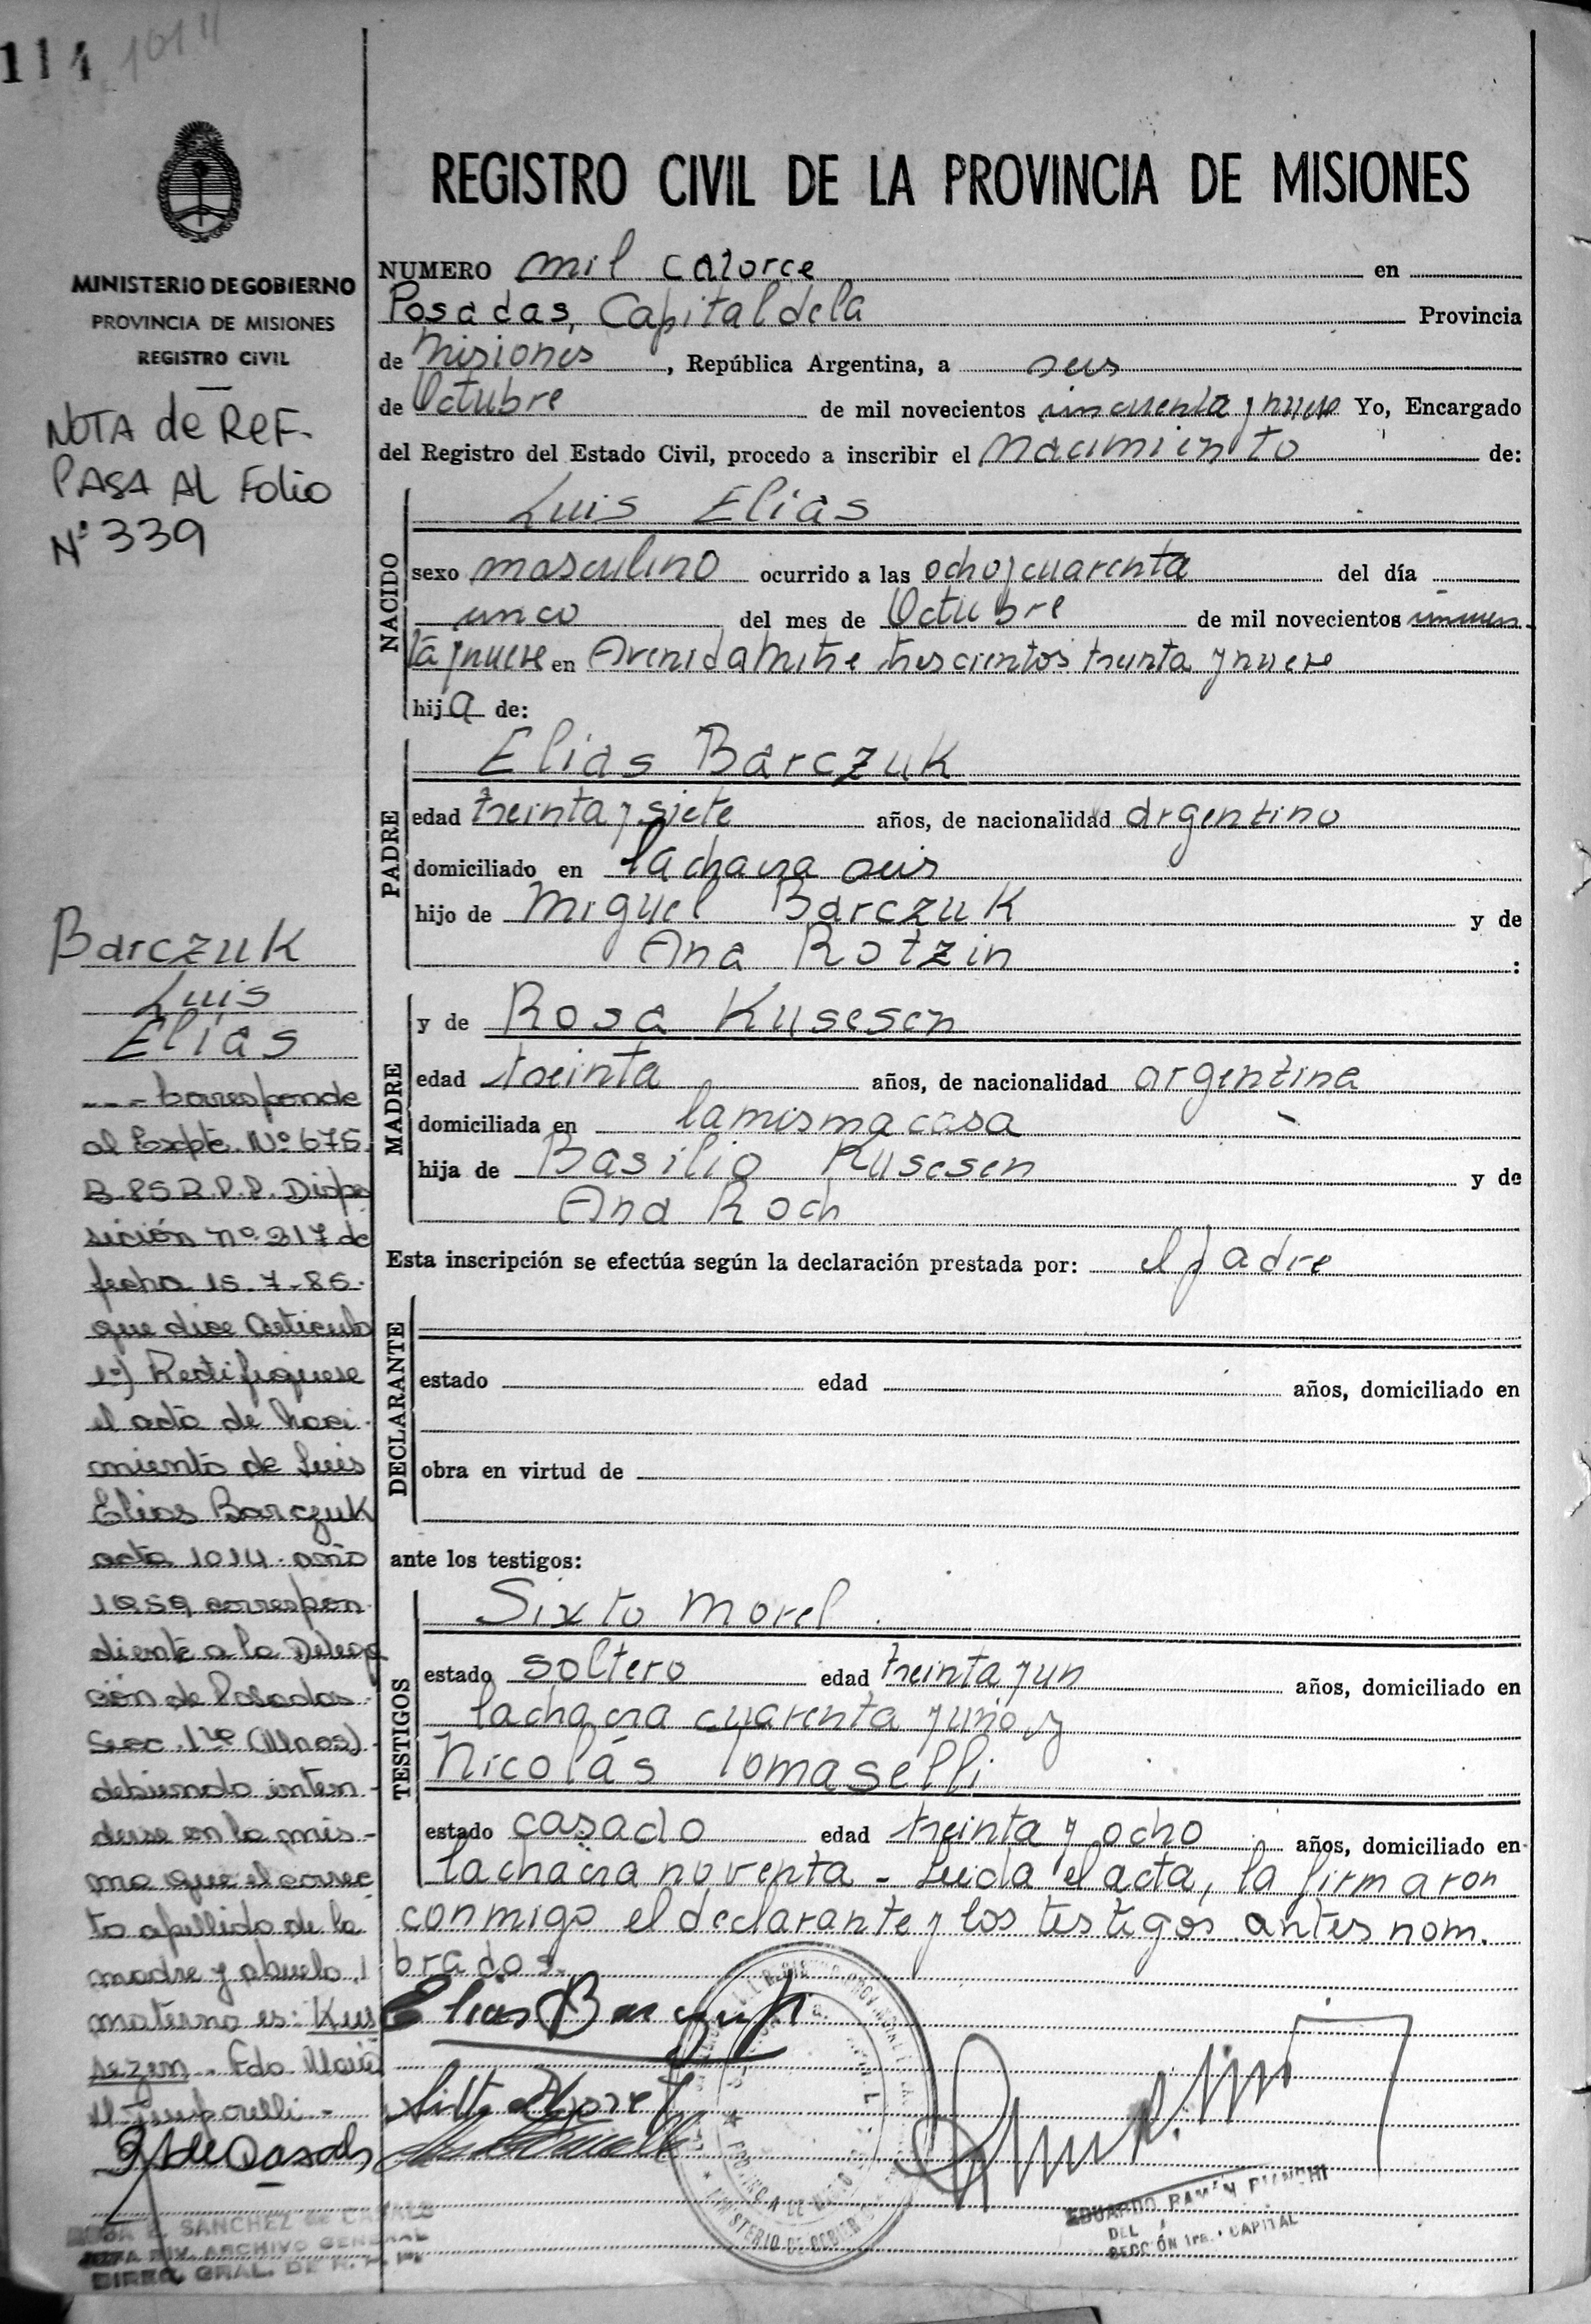 114 1014
MINISTERIO DE GOBIERNO
PROVINCIA DE MISIONES
REGISTRO CIVIL
NOTA de REF.
PASA AL Folio
Nº 339
Barczuk
Luis
Elias
--- Corresponde
al Expte. Nº 675
B-85 R.P.P. Dispo
sición nº 217 de
fecha 15-7-85-
que dice Artículo
1º) Rectifíquese
el acta de Naci-
miento de Luis
Elias Barczuk
acta 1014 - año
1959 correspon-
diente a la Delega
ción de Posadas
Secc. 1ra (Mnes)
debiendo enten-
derse en la mis-
ma que el correc
to apellido de la
madre y abuelo
materno es: Kus
sezen. Fdo.
ROSA E. SANCHEZ de CASALS
JEFA DIV. ARCHIVO GENERAL
DIREC. GRAL. DE R.
REGISTRO CIVIL DE LA PROVINCIA DE MISIONES
NUMERO mil catorce en
Posadas, Capital de la Provincia
de Misiones, República Argentina, a seis
de Octubre de mil novecientos cincuenta y nueve Yo, Encargado
del Registro del Estado Civil, procedo a inscribir el nacimiento de:
NACIDO
Luis Elias
sexo masculino ocurrido a las ocho y cuarenta del día
cinco del mes de Octubre de mil novecientos cincuen-
ta y nueve en Avenida Mitre trescientos treinta y nueve
hija de:
PADRE
Elias Barczuk
edad treinta y siete años, de nacionalidad argentino
domiciliado en la chacra seis
hijo de Miguel Barczuk y de
Ana Rotzin :
MADRE
y de Rosa Kusesen
edad treinta años, de nacionalidad argentina
domiciliada en la misma casa
hija de Basilio Kusesen y de
Ana Roch
Esta inscripción se efectúa según la declaración prestada por: el padre
DECLARANTE
estado edad años, domiciliado en
obra en virtud de
ante los testigos:
TESTIGOS
Sixto Morel
estado soltero edad treinta y un años, domiciliado en
la chacra cuarenta y uno y
Nicolás Tomaselli
estado casado edad treinta y ocho años, domiciliado en
la chacra noventa - Leída el acta, la firmaron
conmigo el declarante y los testigos antes nom-
brados.
Elias Barczuk
Sixto Morel
EDUARDO RAMÓN BIANCHI
DEL
SECCIÓN 1ra. CAPITAL